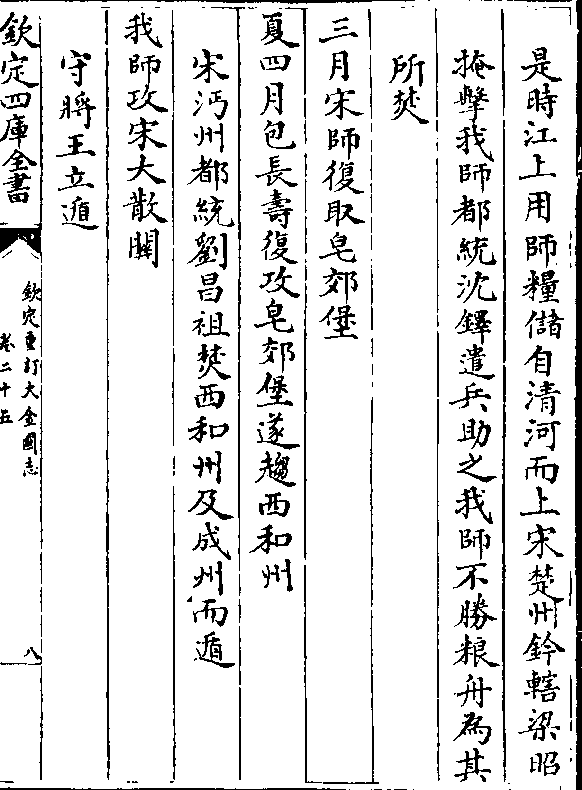 是時江上用師糧儲自清河而上宋楚州鈐轄梁昭
掩擊我師都統沈鐸遣兵助之我師不勝粮舟為其
所焚
三月宋師復取皂郊堡
夏四月包長壽復攻皂郊堡遂趨西和州
宋沔州都統劉昌祖焚西和州及成州而遁
我師攻宋大散關
守將王立遁
欽定四庫全書
欽定重訂大金國志
卷二十五
八